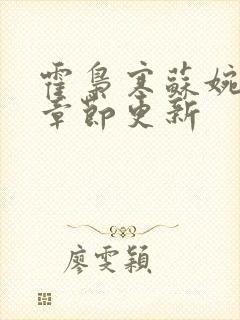 霍梟寒蘇婉
章節更新
廖雯穎